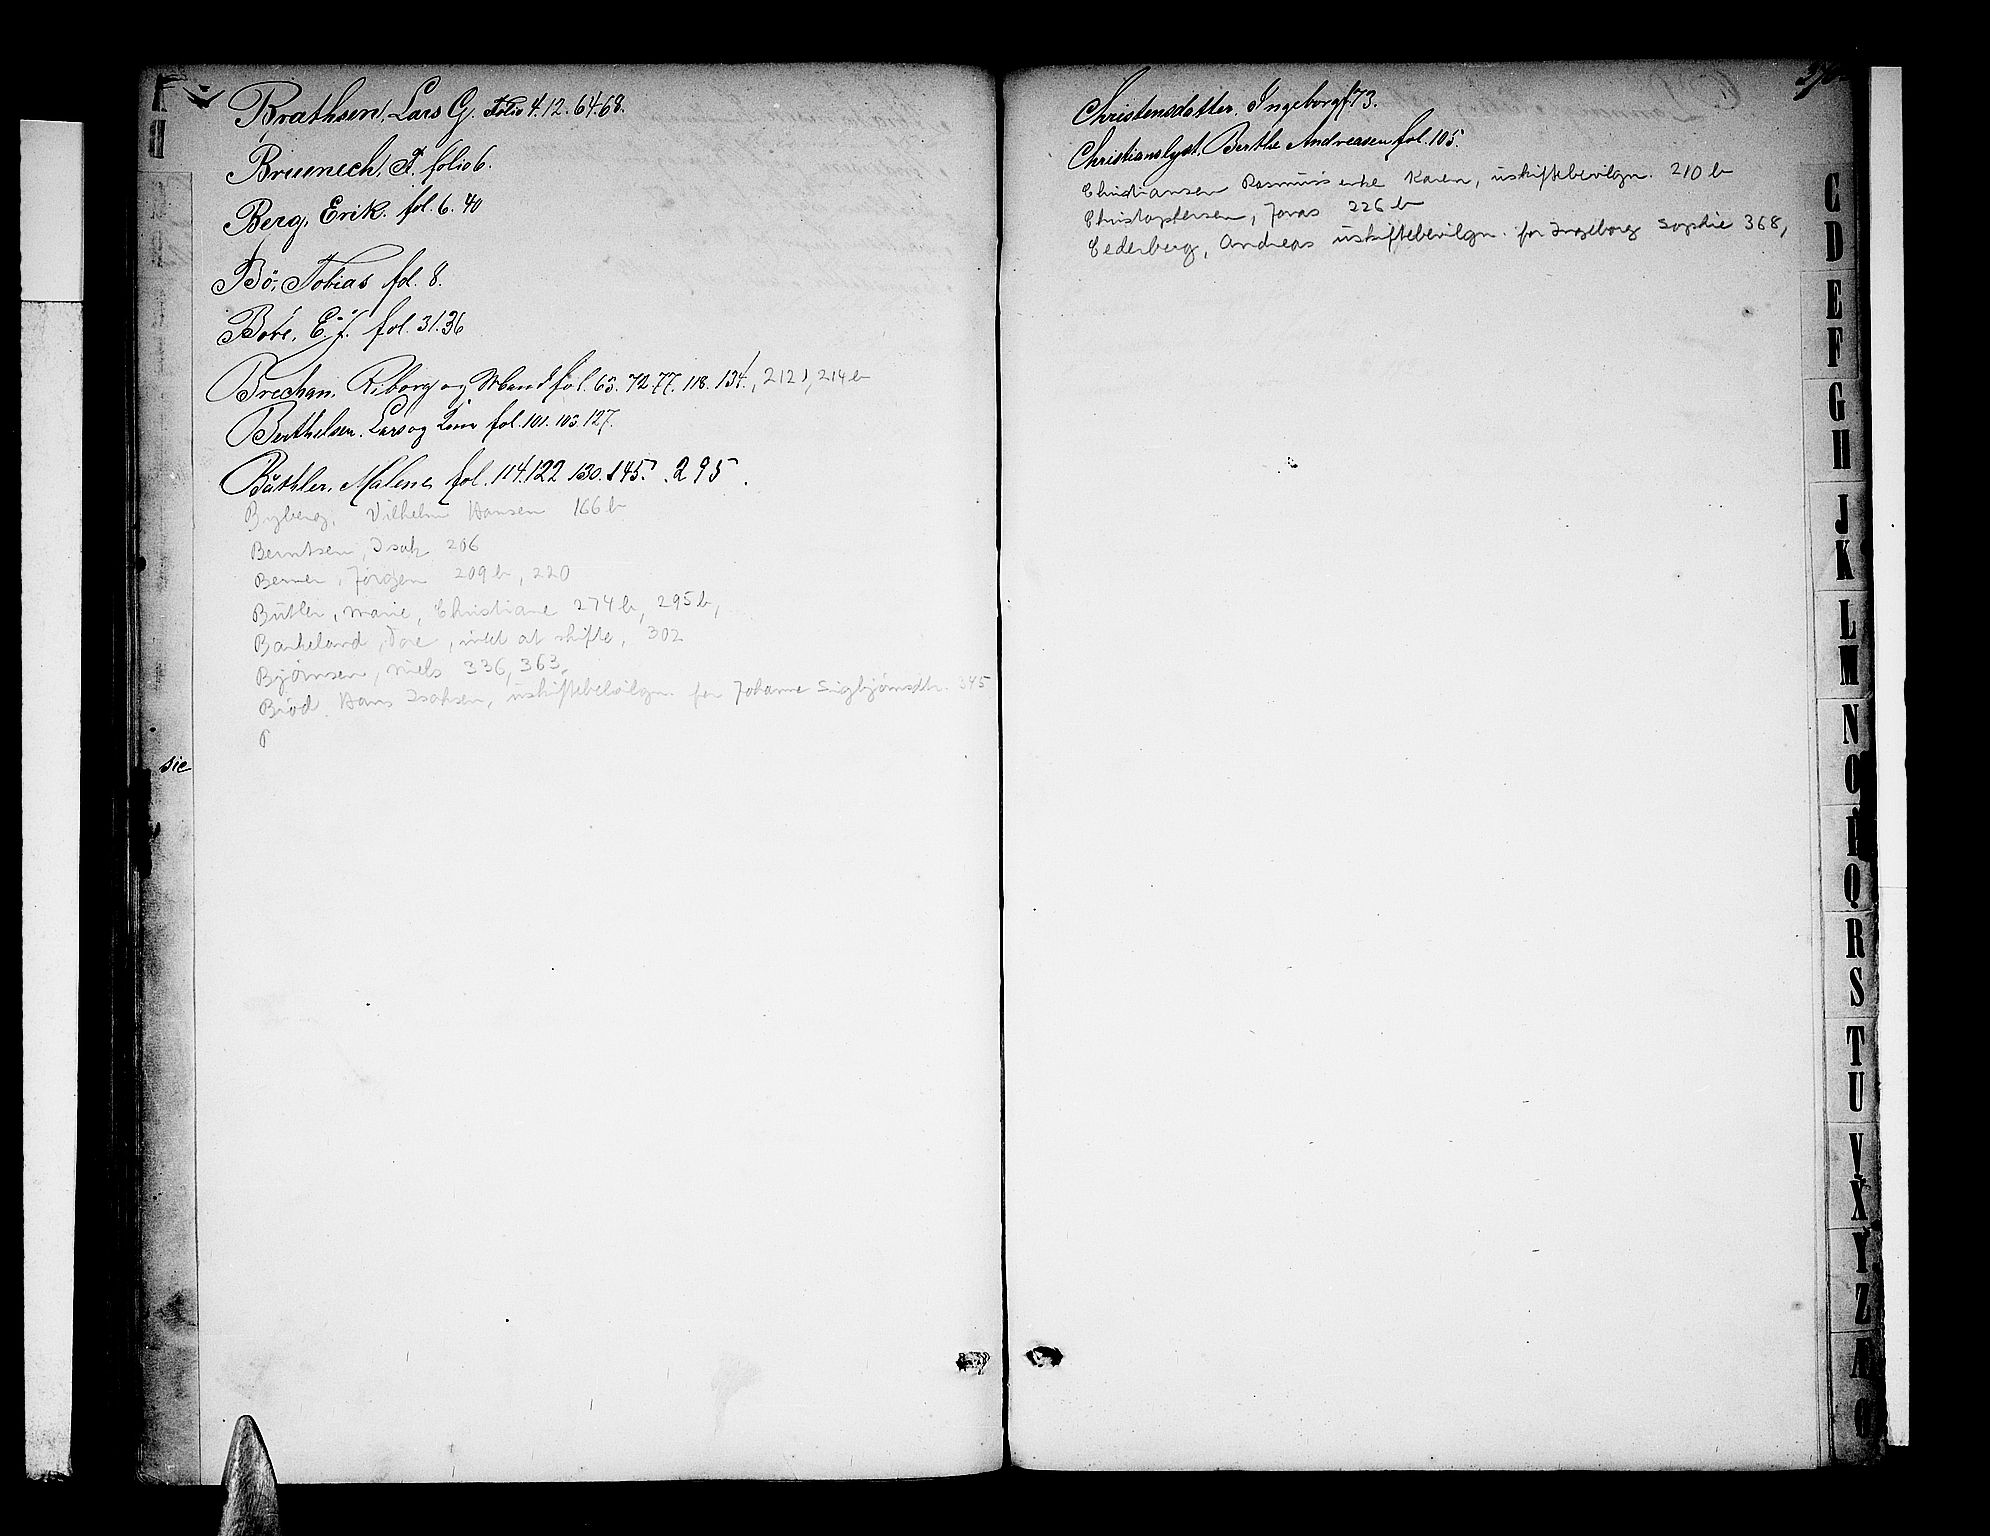 Brathsen, Lars G. Folio 4. 12. 64 68.
Bruenech, folio 6.
Berg, Erik. fol. 6. 40
Bö, Tobias fol. 8.
Bove, E. J. fol. 31. 36
Brechan. Riborg og Mand fol. 63. 72 77. 118. 134., 212, 214 b
Berthelsen. Lars og fol. 101. 103. 127.
Büthler. Malene fol. 114. 122 130. 145. 295.
Byberg, Vilhelm Hansen 166 b
Berntsen, Isak 206
Berner, Jørgen 209 b, 220
Bütler, Marie, Christiane 274 b, 295 b,
Barkeland, Tore, intet at skifte, 302
Bjørnsen, Niels 336, 363,
Brød Hans Isaksen, uskiftebevilgn. for Johanne Sigbjørnsdtr. 345
sie
Christensdatter. Ingeborg f. 73.
Christianslyst. Berthe Andreasen fol. 105.
Christiansen Rasmus's enke Karen, uskiftebevilgn. 210 b
Christophersen, Jonas 226 b
Cederberg, Andreas uskiftebevilgn. for Ingeborg Sophie 368,
C
D
E
F
G
H
J
K
L
M
N
O
P
Q
R
S
T
U
V
X
Y
Z
Æ
Ø